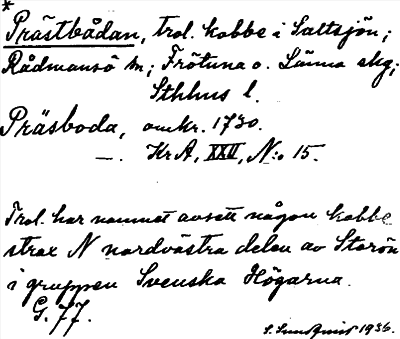 *
Prästbådan, trol. kobbe i Saltsjön;
Rådmansö sn; Frötuna o. Länna skg;
Sthhus l.
Präsboda, omkr. 1730.
—. KrA, XXII, N:o 15.
Trol. har namnet avsett någon kobbe
strax N nordvästra delen av Storön
i gruppen Svenska Högarna.
G. 77.
S. Sundqvist 1936.